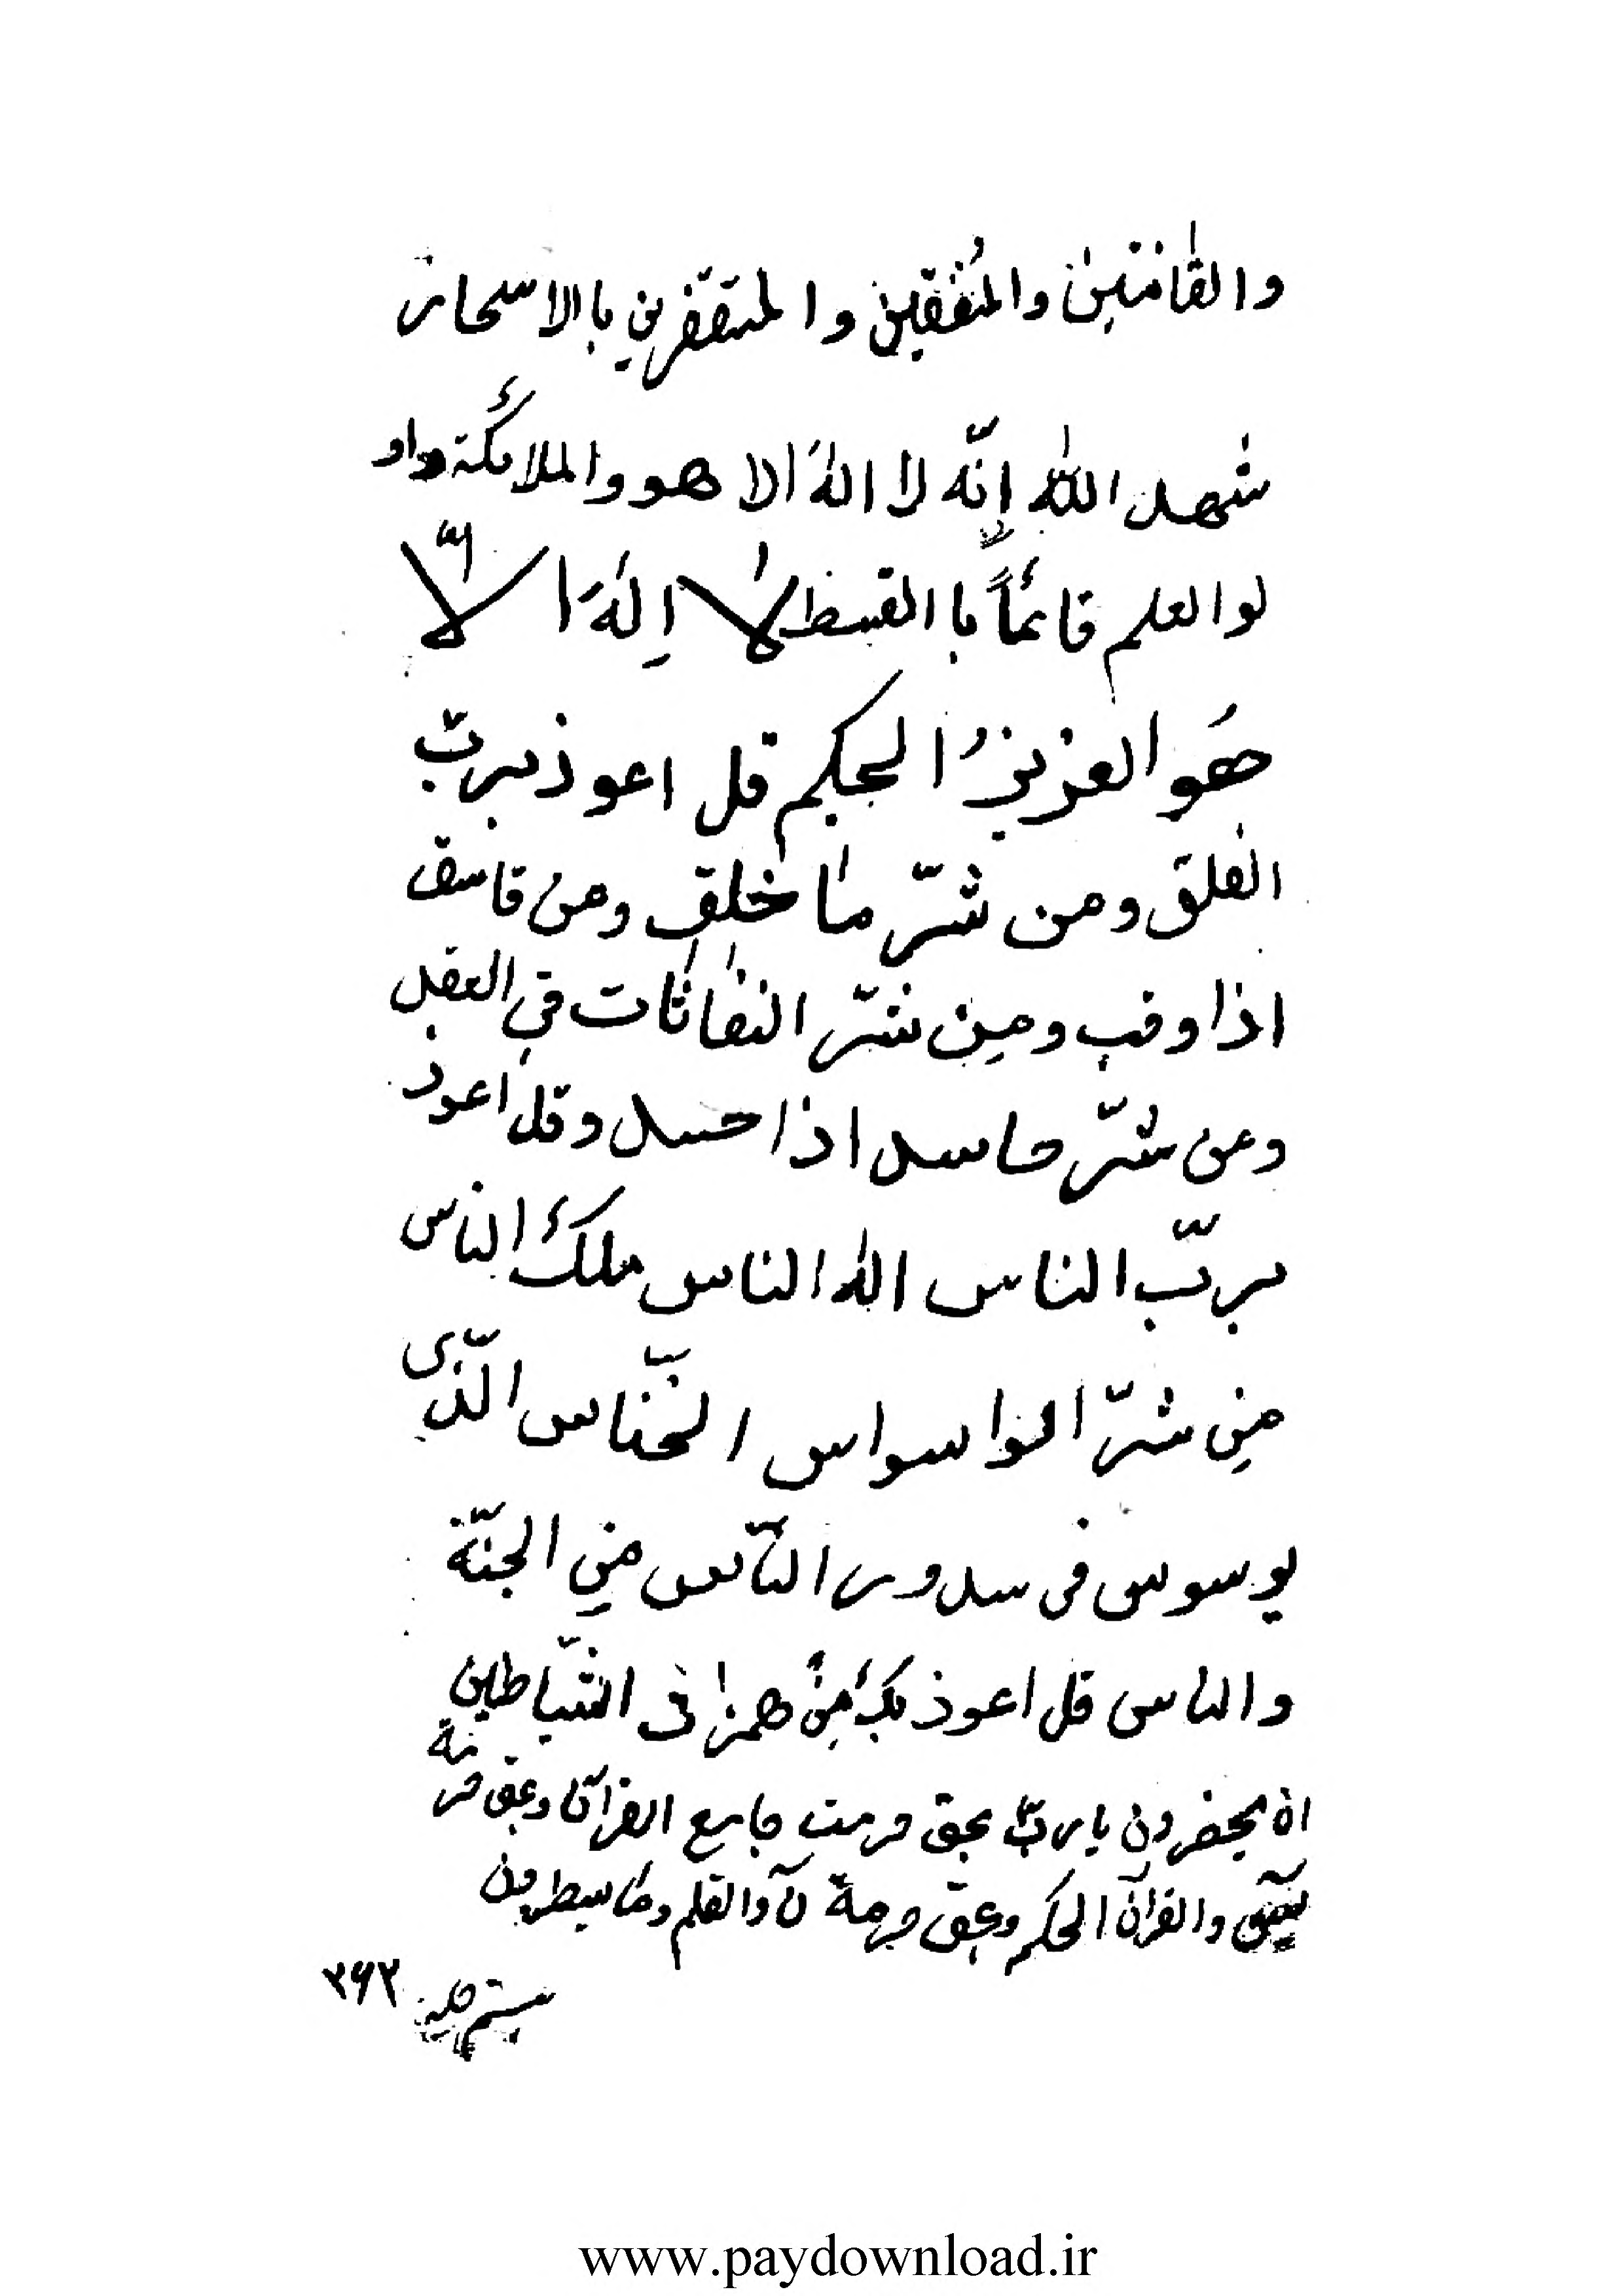 والقانتین والمنفقین والمتقفرین بالاسحار
شهد الله انّه لا اله الا هو والملائکة واو
لوالعلم قائماً باالقسط لا اِلٰهَ الّا
هُو العزیزُ الحکیم قل اعوذ بربّ
الفلق ومن شرّ ما خلق ومن قاسق
اذا وقب ومِن شرّ النفاثات فی العقد
ومن شرّ حاسد اذا حسد وقل اعوذ
بربّ الناس اله الناس ملک الناس
مِن شرّ الواسواس الخنّاس الّذی
یوسوس فی سدور النّاس مِن الجنّة
والناس قل اعوذ بک مِن همزات الشّیاطین
ان یحضرون یا ربّ بحق حرمت جامع القرآن وبحق حرمة
یٓسٓ والقرآن الحکیم وبحق حرمة نٓ والقلم وما یسطرون
۳۶۳
www.paydownload.ir